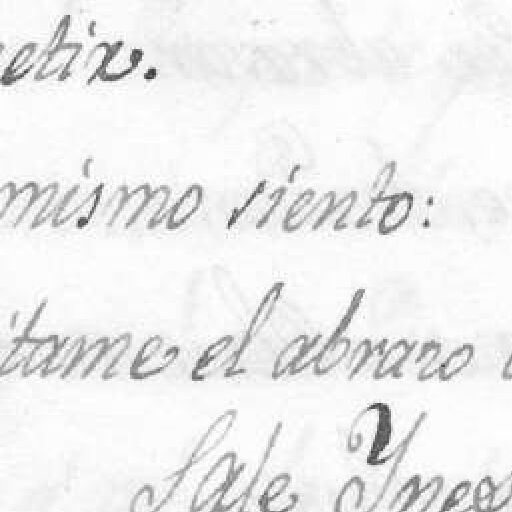 etix.
mismo siento:
itame el abrazo
Sale Ynes